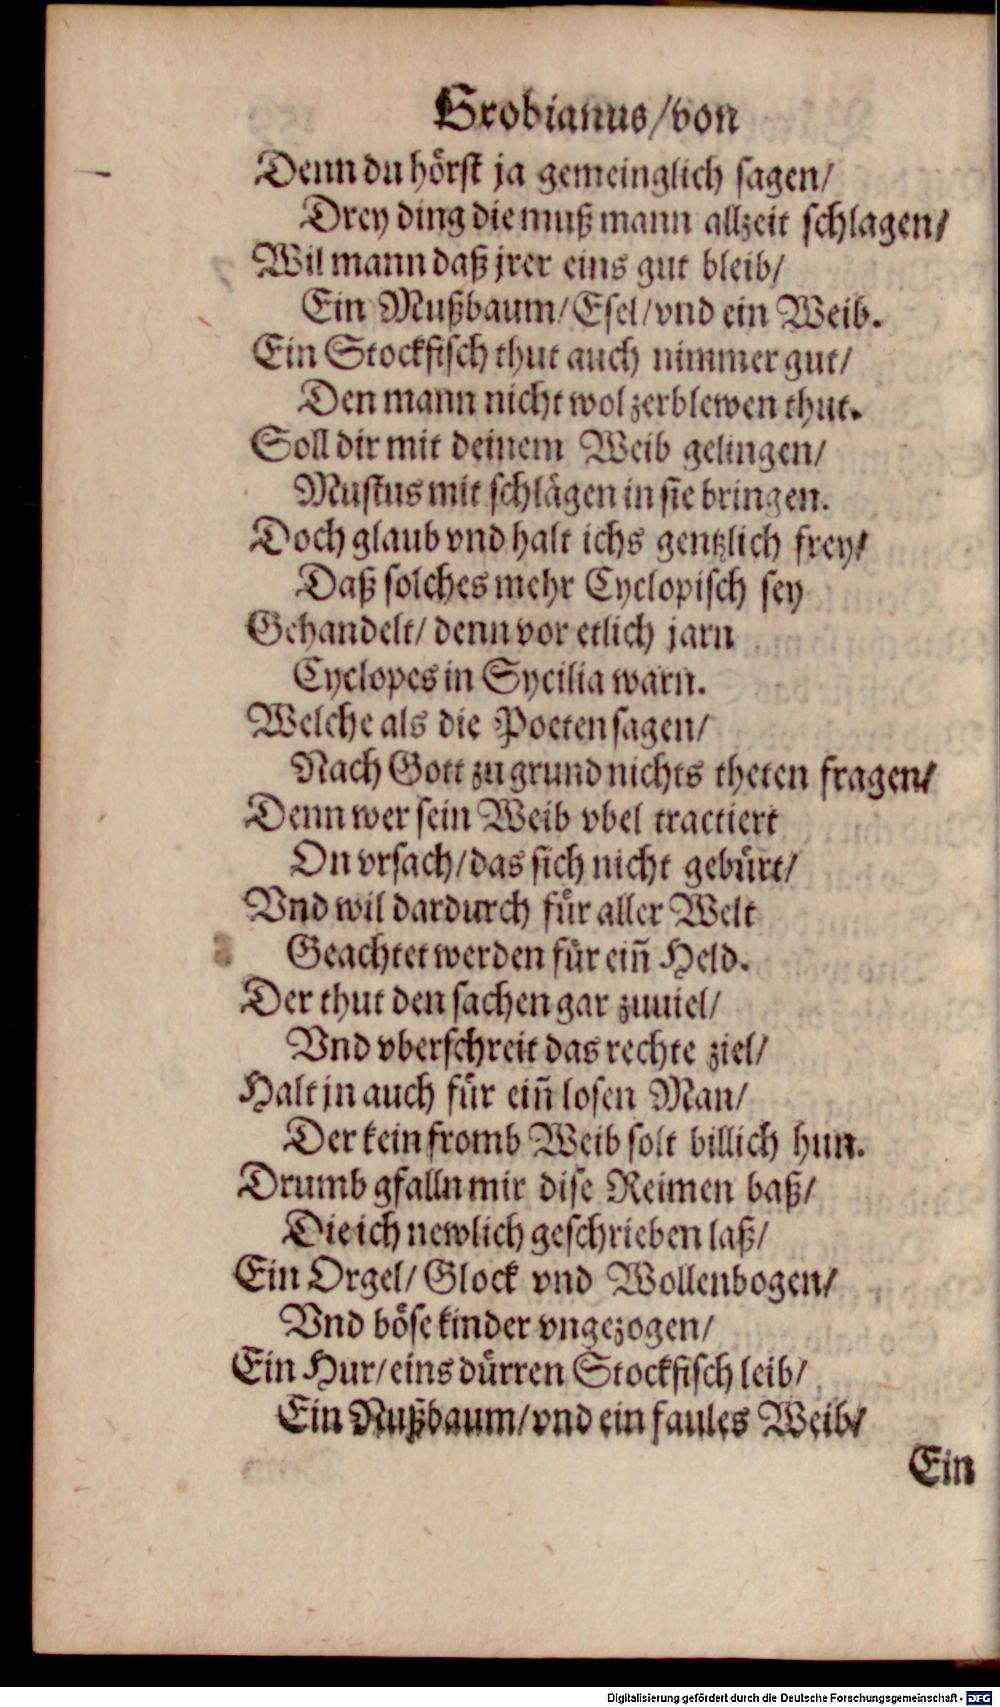 Grobianus/von
Denn du hörst ja gemeinglich sagen/
Drey ding die muß mann allzeit schlagen/
Wil mann daß jrer eins gut bleib/
Ein Nußbaum/Esel/vnd ein Weib.
Ein Stockfisch thut auch nimmer gut/
Den mann nicht wol zerblewen thut.
Soll dir mit deinem Weib gelingen/
Mustus mit schlägen in sie bringen.
Doch glaub vnd halt ichs gentzlich frey/
Daß solches mehr Cyclopisch sey
Gehandelt/ denn vor etlich jarn
Cyclopes in Sycilia warn.
Welche als die Poeten sagen/
Nach Gott zu grund nichts theten fragen/
Denn wer sein Weib vbel tractiert
On vrsach/das sich nicht gebürt/
Vnd wil dardurch für aller Welt
Geachtet werden für ein̄ Held.
Der thut den sachen gar zuuiel/
Vnd vberschreit das rechte ziel/
Halt jn auch für ein̄ losen Man/
Der kein fromb Weib solt billich hun.
Drumb gfalln mir dise Reimen baß/
Die ich newlich geschrieben laß/
Ein Orgel/ Glock vnd Wollenbogen/
Vnd böse kinder vngezogen/
Ein Hur/eins dürren Stockfisch leib/
Ein Nußbaum/vnd ein faules Weib/
Ein
Digitalisierung gefördert durch die Deutsche Forschungsgemeinschaft - DFG